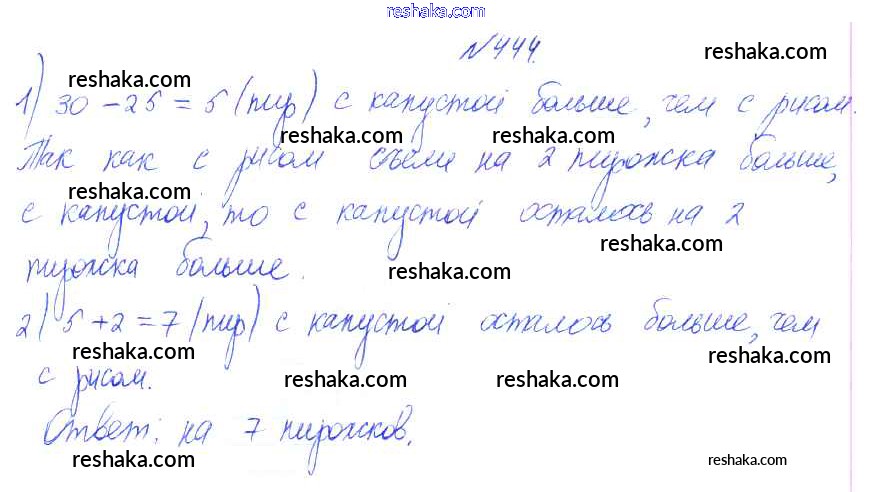 reshaka.com
№444.
reshaka.com
reshaka.com
1) 30 – 25 = 5 (пир) с капустой больше, чем с рисом.
reshaka.com reshaka.com
Так как с рисом съели на 2 пирожка больше,
reshaka.com
с капустой, то с капустой осталось на 2
reshaka.com
пирожка больше.
reshaka.com
2) 5 + 2 = 7 (пир) с капустой осталось больше, чем
reshaka.com reshaka.com
с рисом.
reshaka.com reshaka.com
Ответ: на 7 пирожков.
reshaka.com reshaka.com